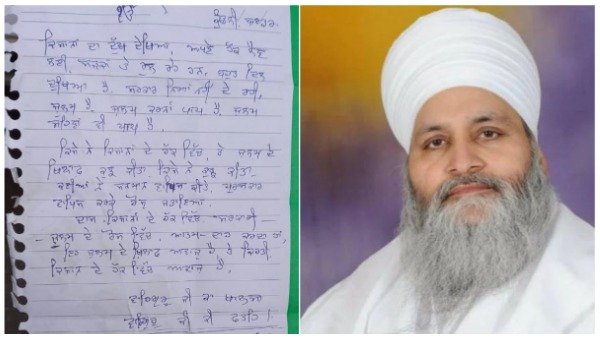 ਕਿਸਾਨਾਂ ਦਾ ਦੁੱਖ ਦੇਖਿਆ, ਆਪਣੇ ਹੱਕ ਲੈਣ
ਲਈ, ਸੜਕਾਂ ਤੇ ਰੁਲ ਰਹੇ ਹਨ, ਬਹੁਤ ਦਿਲ
ਦੁਖਿਆ ਹੈ, ਸਰਕਾਰ ਨਿਆਂ ਨਹੀਂ ਦੇ ਰਹੀ,
ਜੁਲਮ ਹੈ, ਜੁਲਮ ਕਰਨਾ ਪਾਪ ਹੈ, ਜੁਲਮ
ਸਹਿਣਾ ਵੀ ਪਾਪ ਹੈ,
ਕਿਸੇ ਨੇ ਕਿਸਾਨਾਂ ਦੇ ਹੱਕ ਵਿੱਚ, ਤੇ ਜੁਲਮ ਦੇ
ਖਿਲਾਫ ਕੁਝ ਕੀਤਾ, ਕਿਸੇ ਨੇ ਕੁਝ ਕੀਤਾ,
ਕਈਆਂ ਨੇ ਸਨਮਾਨ ਵਾਪਿਸ ਕੀਤੇ, ਪੁਰਸਕਾਰ
ਵਾਪਿਸ ਕਰਕੇ ਰੋਸ ਜਤਾਇਆ,
ਦਾਸ ਕਿਸਾਨਾਂ ਦੇ ਹੱਕ ਵਿੱਚ, ਸਰਕਾਰੀ
ਜੁਲਮ ਦੇ ਰੋਸ ਵਿੱਚ, ਆਤਮ-ਦਾਹ ਕਰਦਾ ਹੈ,
ਇਹ ਜੁਲਮ ਦੇ ਖਿਲਾਫ ਆਵਾਜ਼ ਹੈ, ਤੇ ਕਿਰਤੀ
ਕਿਸਾਨ ਦੇ ਹੱਕ ਵਿੱਚ ਆਵਾਜ਼ ਹੈ,
ਵਾਹਿਗੁਰੂ ਜੀ ਕਾ ਖਾਲਸਾ
ਵਾਹਿਗੁਰੂ ਜੀ ਕੀ ਫਤਹਿ।